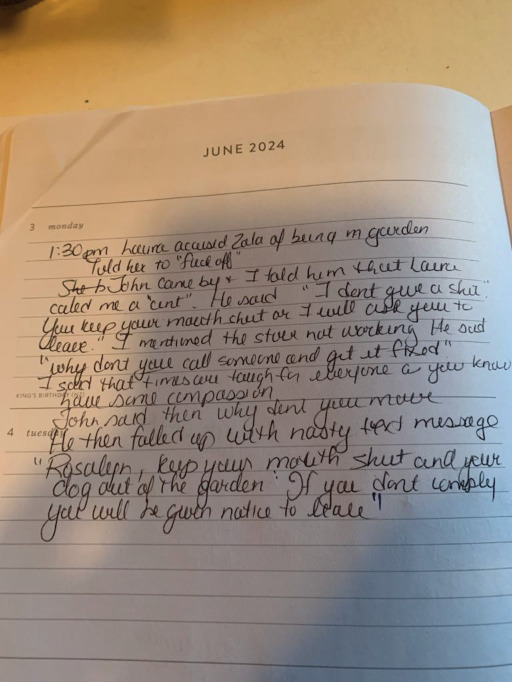 JUNE 2024
3 monday
1:30pm Laura acused Zala of being in garden
Told her to "fuck off"
She b John came by & I told him that Laura
caled me a "cunt". He said "I dont give a shit"
You keep your mouth shut or I will ask you to
leave." I mentioned the stove not working He said
"why dont you call someone and get it fixed"
I said that times are tough for everyone a you know
KING'S BIRTHDAY
have some compassion
John said then why dont you move
4 tuesday
He then falled up with nasty text message
"Rosalyn, keep your mouth shut and your
dog out of the garden" If you dont comply
you will be given notice to leave"